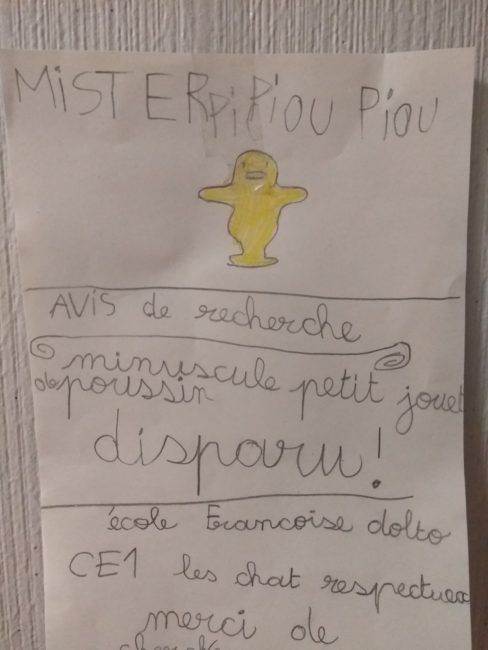 MiSTERpiPiou Piou
AViS de recherche
minuscule petit jouet
de poussin
disparu!
école Francoise dolto
CE1 les chat respectueux
merci de